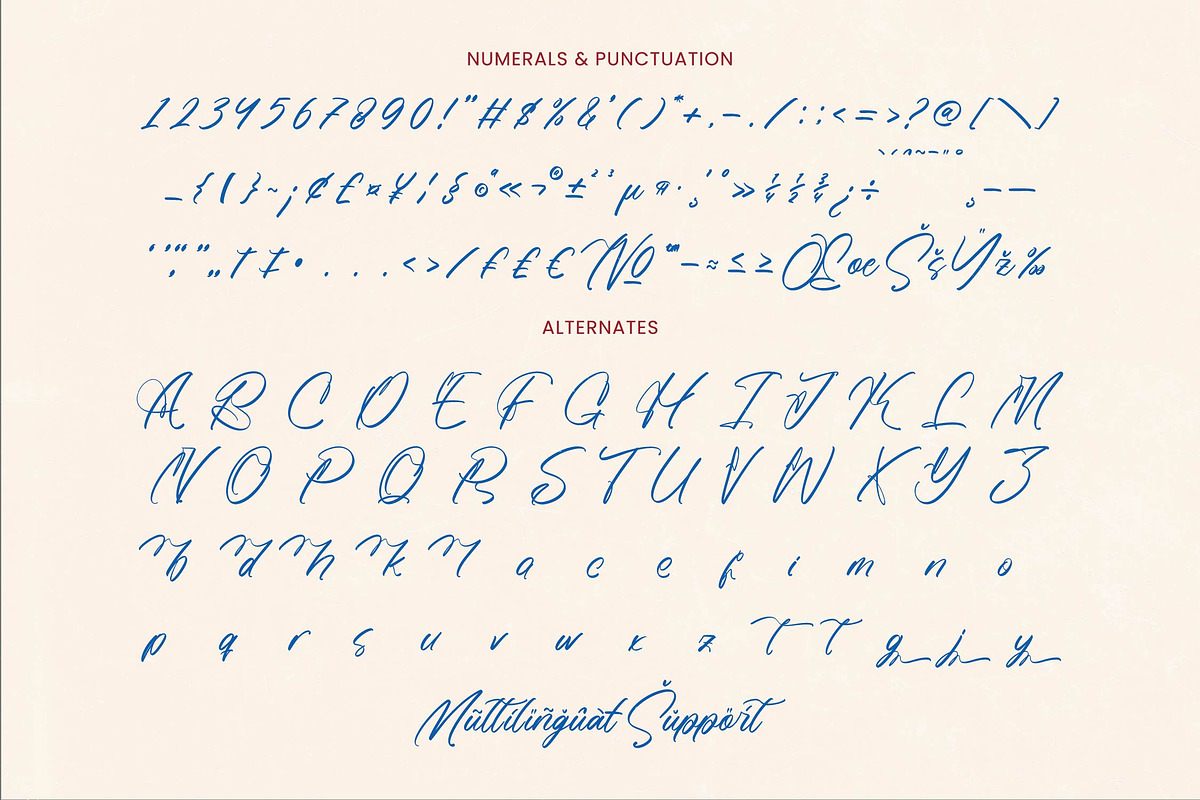 NUMERALS & PUNCTUATION
1 2 3 4 5 6 7 8 9 0 ! " # $ % & ' ( ) * + , - . / : ; < = > ? @ [ \ ]
_ { | } ~ ¡ ¢ £ ¤ ¥ ¦ § © ª « ¬ ® ± ² ³ µ ¶ · ¸ ¹ º » ¼ ½ ¾ ¿ ÷ ¸ – —
‘ ’ ‚ “ ” „ † ‡ • . . . < > / ₣ ₤ € № ™ − ≈ ≤ ≥ Œ œ Š š Ÿ ž ‰
ALTERNATES
A B C D E F G H I J K L M
N O P Q R S T U V W X Y Z
b d h k l a c e f i m n o
p q r s u v w x z T T g j y
Mũltilïñğûàl Šüppört